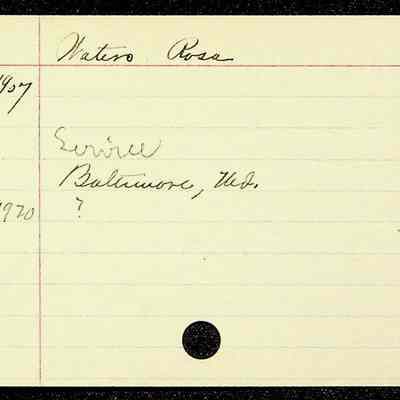 Waters Rosa
1907
Service
Baltimore, Md.
1920 ?